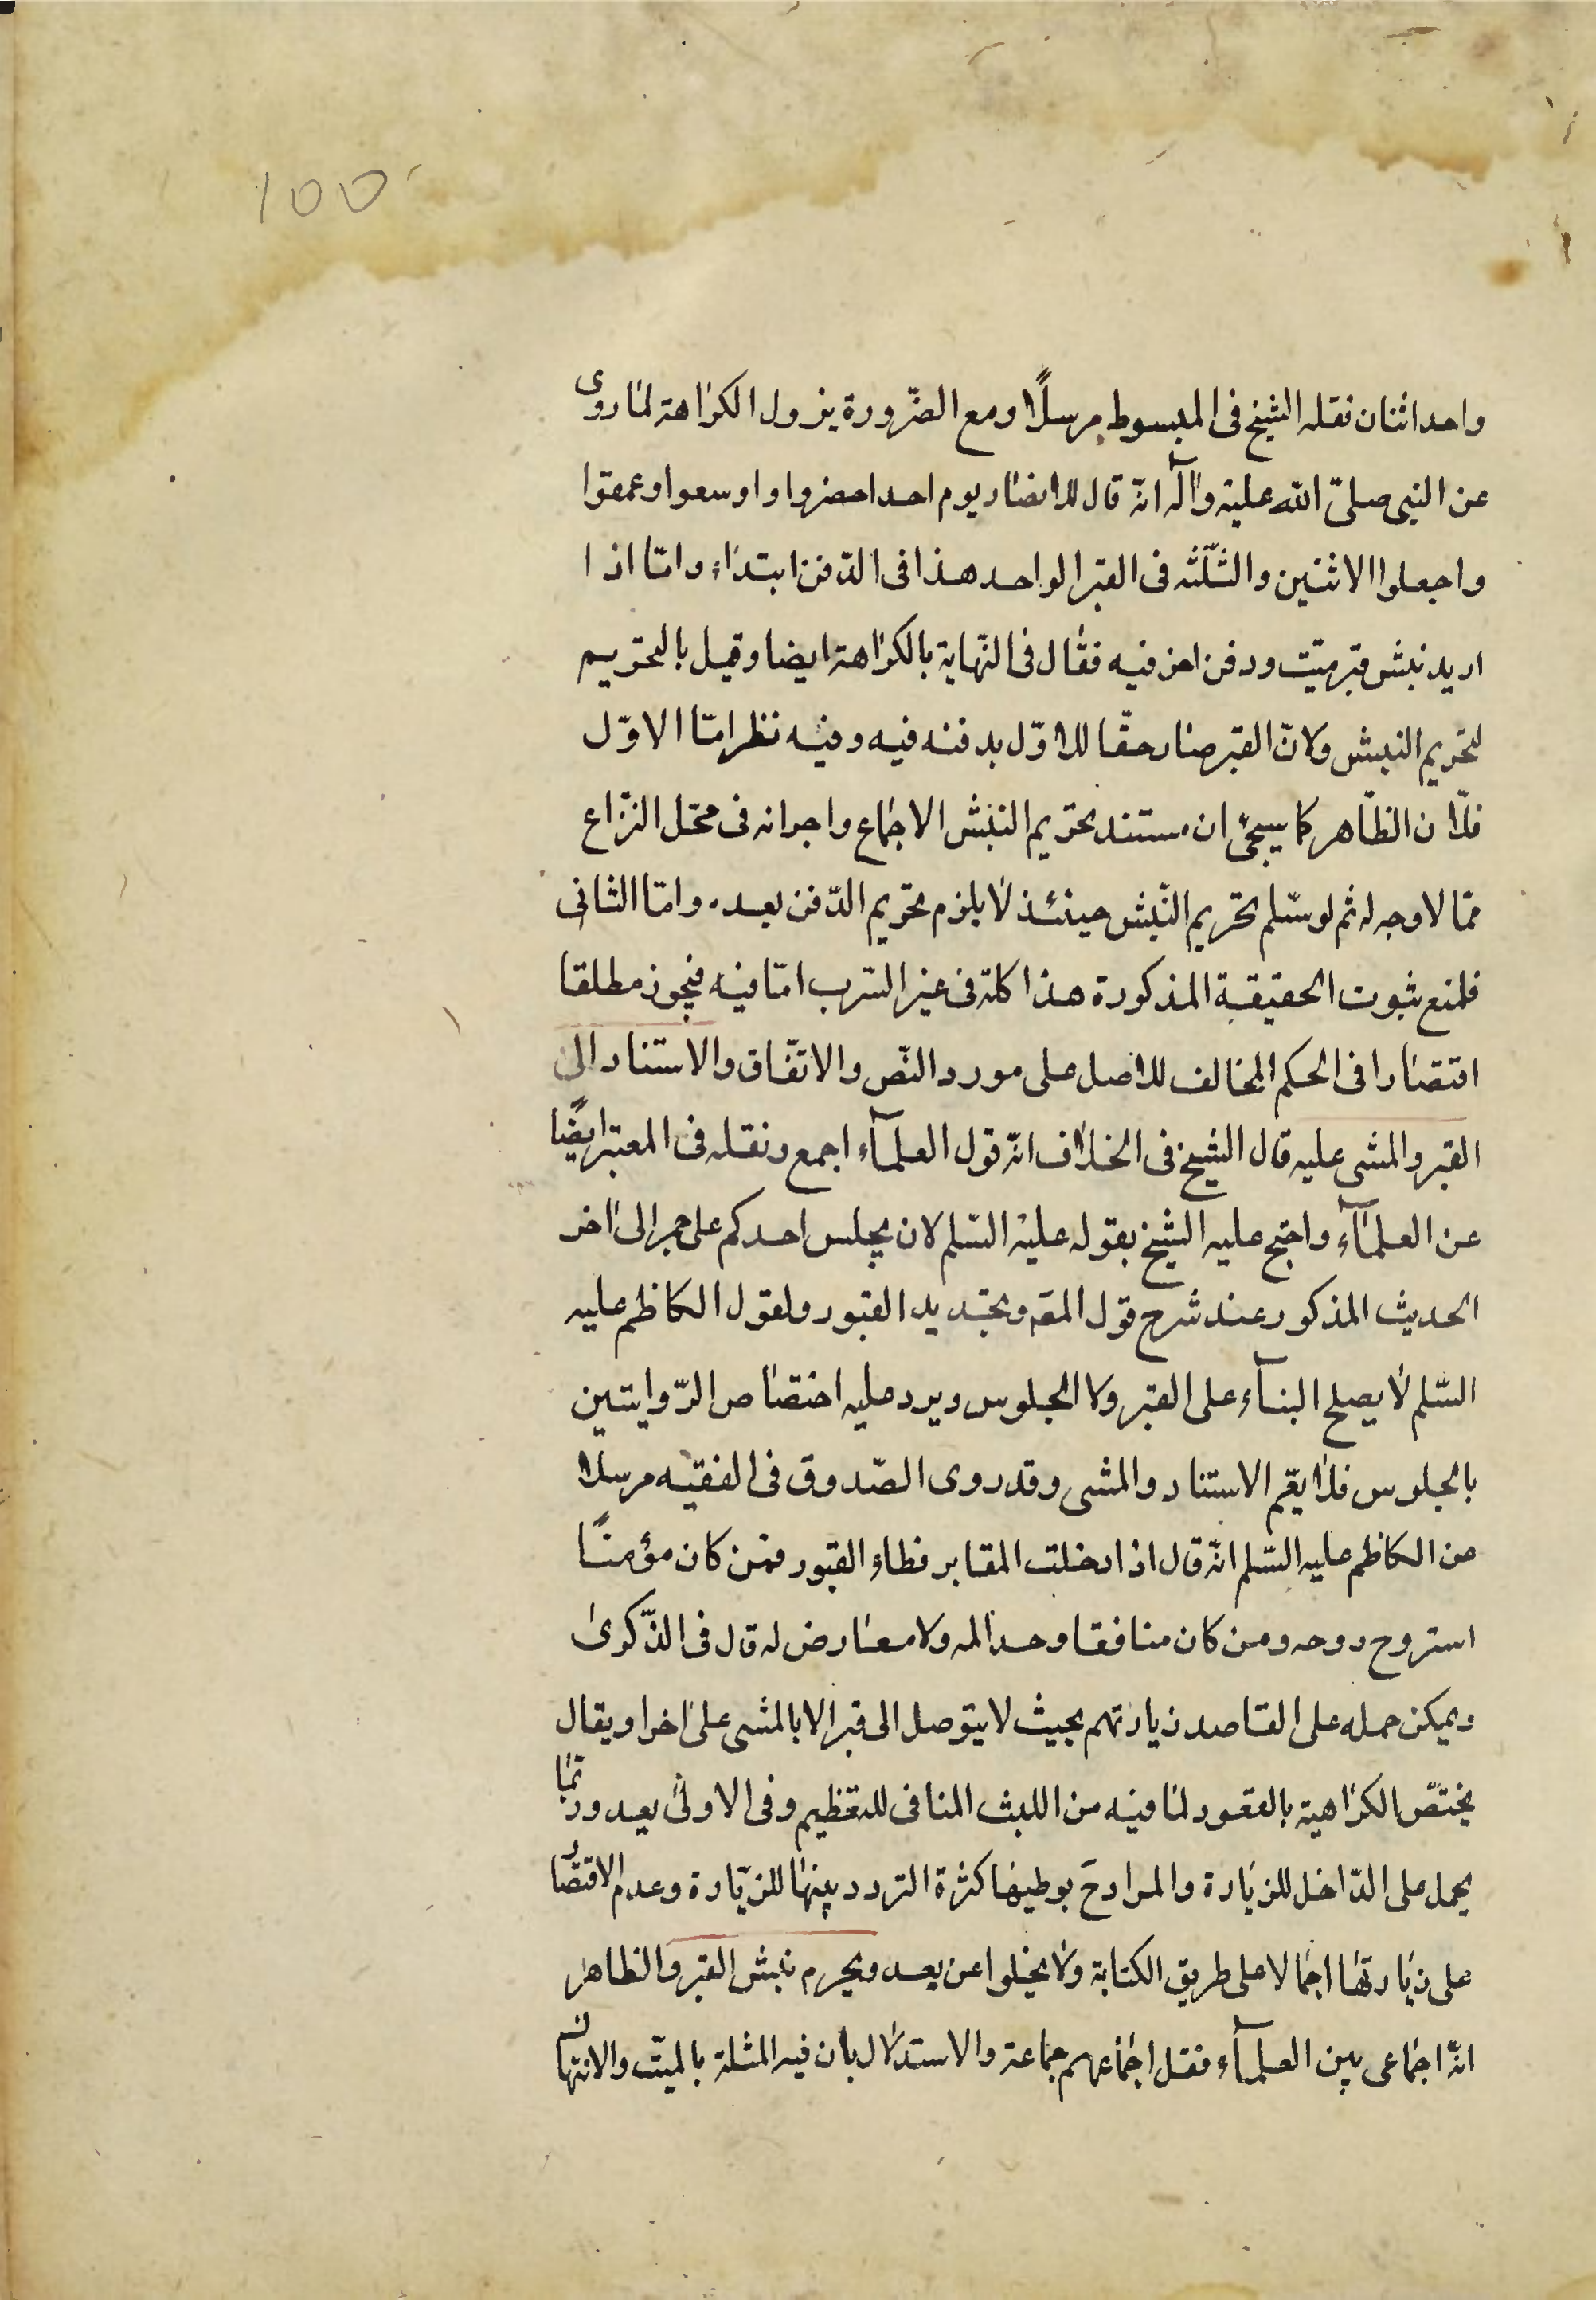 ١٥٥
واحد اثنان نقله الشيخ فى المبسوط مرسلًا ومع الضّرورة يزول الكراهة لما روى
عن النبى صلىّ الله عليه وآله انّه قال للانصار يوم احد احضروا واوسعوا وعمقوا
واجعلوا الاثنين والثّلثه فى القبر الواحد هذا فى الدّفن ابتداء وامّا اذا
اريد نبش قبر ميّت ودفن اخر فيه فقال فى النّهاية بالكراهة ايضا وقيل بالتحريم
لتحريم النبش ولانّ القبر صار حقّا للاوّل بدفنه فيه وفيه نظر امّا الاوّل
فلان الظّاهر كما سيجئ ان مستند تحريم النبش الاجماع واجرائه فى محّل النزّاع
ممّا لا وجه له ثم لو سّلم تحريم النّبش حينئذ لا يلزم تحريم الدّفن بعده وامّا الثانى
فلمنع ثبوت الحقيقية المذكورة هذا كلّه فى غير السّرب امّا فيه فيجوز مطلقا
اقتصارا فى الحكم المخالف للاصل على مورد النّص والاتفّاق والاستناد الى
القبر والمشى عليه قال الشيخ فى الخلاف انّه قول العلمآء اجمع ونقله فى المعتبر ايضًا
عن العلمآء واحتج عليه الشيخ بقوله عليه السّلم لان يجلس احدكم على جمر الى اخر
الحديث المذكور عند شرح قول المقه وتجديد القبور ولقول الكاظم عليه
السّلم لا يصلح البنآء على القبر ولا الجلوس ويرد عليه اختصاص الرّوايتين
بالجلوس فلا يعّم الاستناد والمشى وقد روى الصّدوق فى الفقيه مرسلا
عن الكاظم عليه السّلم انّه قال اذا دخلت المقابر فطاء القبور فمن كان مؤمنًا
استروح روحه ومن كان منافقا وجد المه ولا معارض له قال فى الذّكرى
ويمكن حمله على القاصد زيارتهم بحيث لا يتوصل الى قبر الا بالمشى على اخر او يقال
يختّص الكراهية بالقعود لما فيه من اللبث المنافى للتعظيم وفى الاولى بعد وربّما
يحمل على الدّاخل للزيارة والمراد ح بوطيها كثرة التردد بينها للزيّارة وعدم الاقتصار
على زيارتها اجمالا على طريق الكناية ولا يخلوا عن بعد ويحرم نبش القبر والظاهر
انّه اجماعى بين العلمآء فنقل اجماعهم جماعة والاستدلال بان فيه المثلة بالميّت والانتهاك